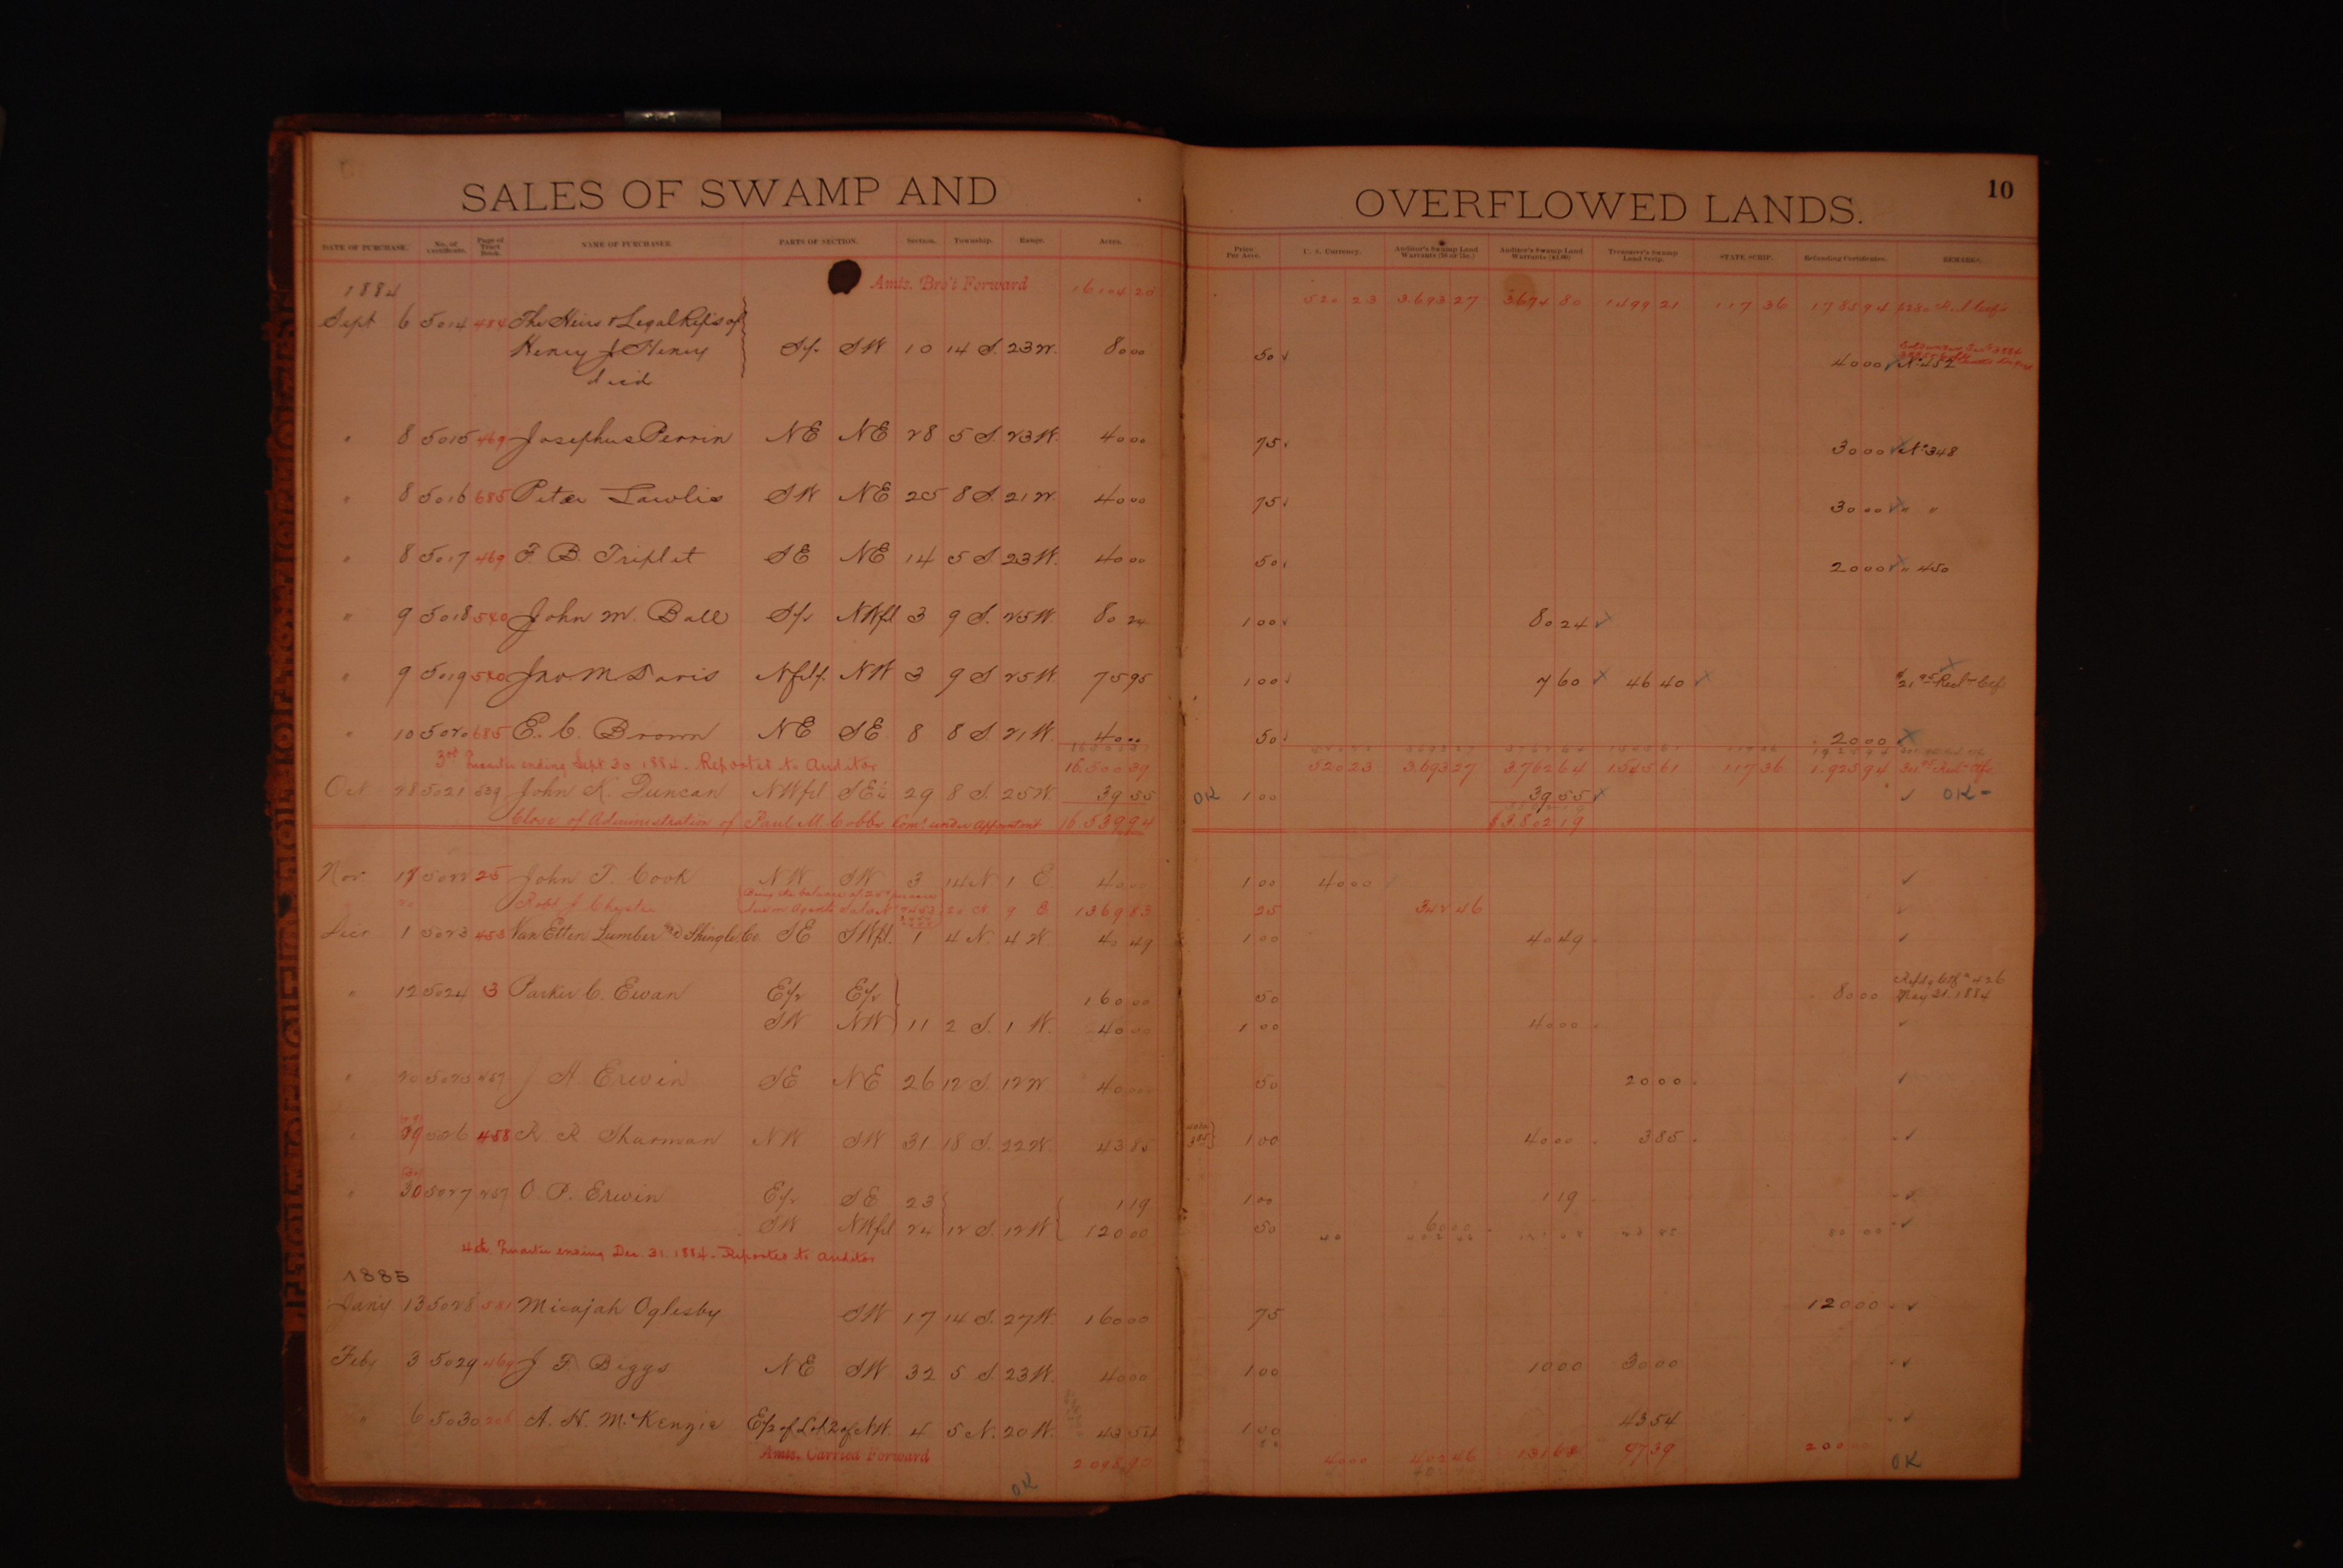 SALES OF SWAMP AND OVERFLOWED LANDS. 10
DATE OF PURCHASE. No. of Certificate. Page of Tract Book. NAME OF PURCHASER. PARTS OF SECTION. Section. Township. Range. Acres. Price Per Acre. U. S. Currency. Auditor's Swamp Land Warrants (50 or 75c.) Auditor's Swamp Land Warrants ($1.00) Treasurer's Swamp Land Scrip. STATE SCRIP. Refunding Certificates. REMARKS.
1884 Amts. Bro't Forward 520 23 3.693 27 3674 80 1499 21 117 36 1785 94
Sept 6 5014 484 The Heirs & Legal Rep's of
Henry J Henry S/2 SW 10 14 S. 23 W. 80 00 50 40 00 No 452
dec'd
" 8 5015 469 Josephus Perrin NE NE 28 5 S. 23 W. 40 00 75 30 00 No 348
" 8 5016 685 Peter Lawlis SW NE 25 8 S. 21 W. 40 00 75 30 00 " "
" 8 5017 469 F. B. Triplet SE NE 14 5 S. 23 W. 40 00 50 20 00 " 450
" 9 5018 540 John M. Ball S/2 NWfl 3 9 S. 25 W. 80 24 1 00 80 24
" 9 5019 540 Jno M Davis NW 3 9 S 25 W 75 95 1 00 7 60 46 40
" 10 5020 685 E. C. Brown NE SE 8 8 S 21 W. 40 00 50 20 00
3rd Quarter ending Sept 30 1884 - Reported to Auditor 16.500 39 520 23 3.693 27 3.762 64 1.545 61 117 36 1.925 94
Oct 28 5021 639 John K. Duncan NWfrl SE 1/4 29 8 S. 25 W. 39 55 OK 1 00 39 55 OK -
Close of Administration of Paul M Cobbs Com'r under Appointment 16.539 94 $3.802 19
Nov 17 5022 25 John T. Cook NW SW 3 14 N 1 E 40 00 1 00 40 00
20 Robt J Chester 20 N. 9 E 1369 83 25 342 46
Decr 1 5023 453 Van Etten Lumber and Shingle Co. SE SWfrl. 1 4 N. 4 W. 40 49 1 00 40 49
" 12 5024 3 Parker C. Ewan E/2 E/2 160 00 50 80 00 Refdg Ctf No 426
May 21. 1884
SW NW 11 2 S. 1 W. 40 00 1 00 40 00
" 20 5025 257 J A. Erwin SE NE 26 12 S. 12 W 40 00 50 20 00
" 29 5026 458 R. R. Sharman NW SW 31 18 S. 22 W. 43 85 1 00 40 00 3 85
" 30 5027 257 O. P. Erwin E/2 SE 23 1 19 1 00 1 19
SW NWfrl 24 12 S. 12 W 120 00 50 60 00
4th Quarter ending Dec. 31. 1884 - Reported to Auditor
1885
Jany 13 5028 581 Micajah Oglesby SW 17 14 S. 27 W. 160 00 75 120 00
Feby 3 5029 469 J F. Biggs NE SW 32 5 S. 23 W. 40 00 1 00 10 00 30 00
" 6 5030 206 A. H. McKenzie E/2 of Lot 2 of NW. 4 5 N. 20 W. 43 54 1 00 43 54
Amts. Carried Forward 2.098 90 40 00 402 46 97 39 200 00 OK
OK